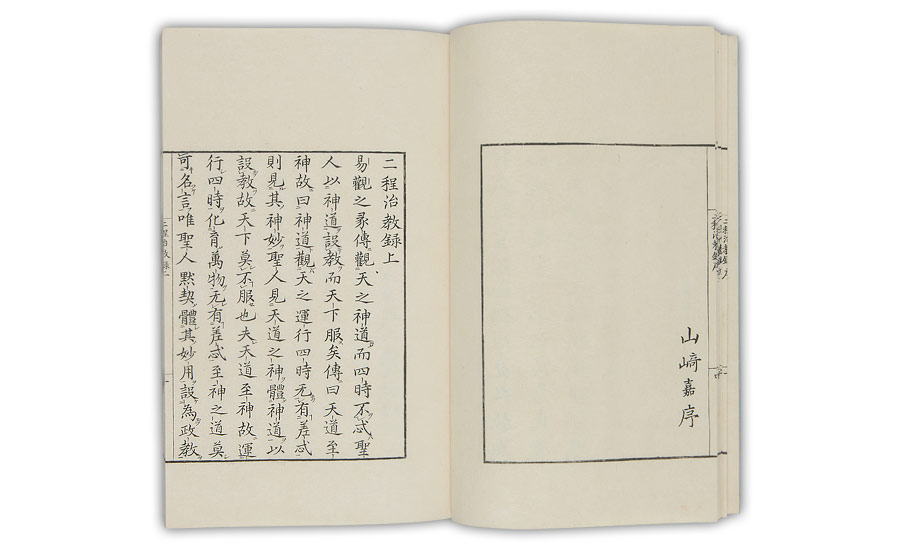 山﨑嘉序
二程治教録上
易觀之彖傳觀天之神道而四時不忒聖
人以神道設教而天下服矣傳曰天道至
神故曰神道觀天之運行四時无有差忒
則見其神妙聖人見天道之神體神道以
設教故天下莫不服也夫天道至神故運
行四時化育萬物无有差忒至神之道莫
可名言唯聖人默契體其妙用設為政教